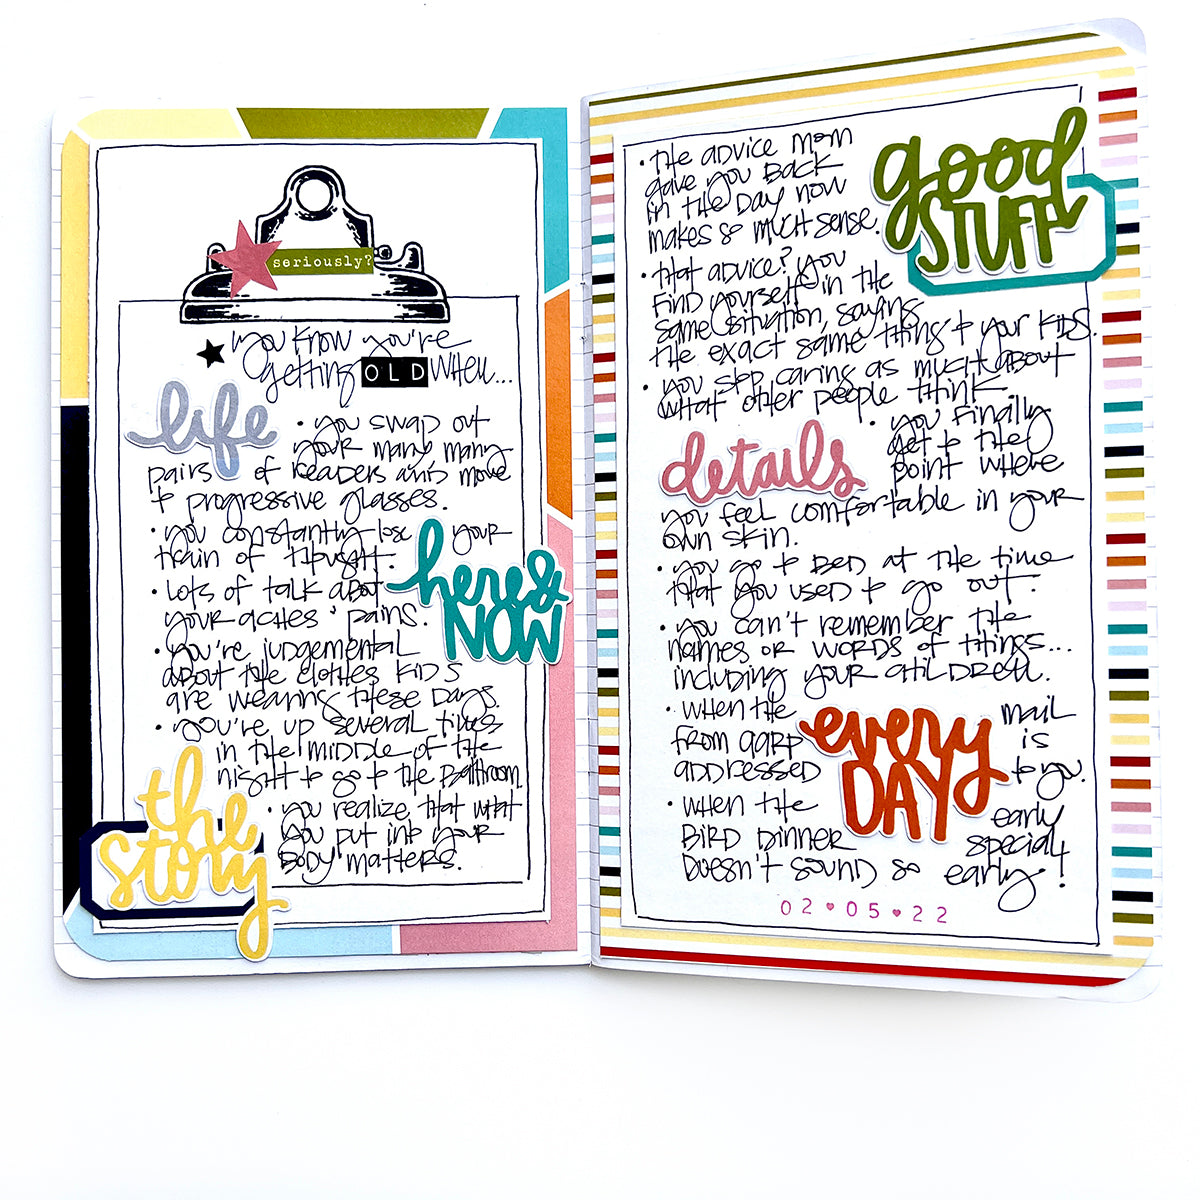 seriously?
you know you're
getting OLD when...
life
• you swap out
your many many
pairs of readers and move
to progressive glasses.
• you constantly lose your
train of thought.
here & NOW
• lots of talk about
your aches + pains.
• you're judgemental
about the clothes kids
are wearing these days.
• you're up several times
in the middle of the
night to go to the bathroom.
the story
• you realize that what
you put into your
body matters.
good STUFF
• the advice mom
gave you back
in the day now
makes so much sense.
• that advice? you
find yourself in the
same situation, saying
the exact same thing to your kids.
• you stop caring as much about
what other people think.
details
• you finally
get to the
point where
you feel comfortable in your
own skin.
• you go to bed at the time
that you used to go out.
• you can't remember the
names or words of things...
including your children.
• when the mail
from aarp is
addressed to you.
every DAY
• when the early
bird dinner special
doesn't sound so early!
02♥05♥22